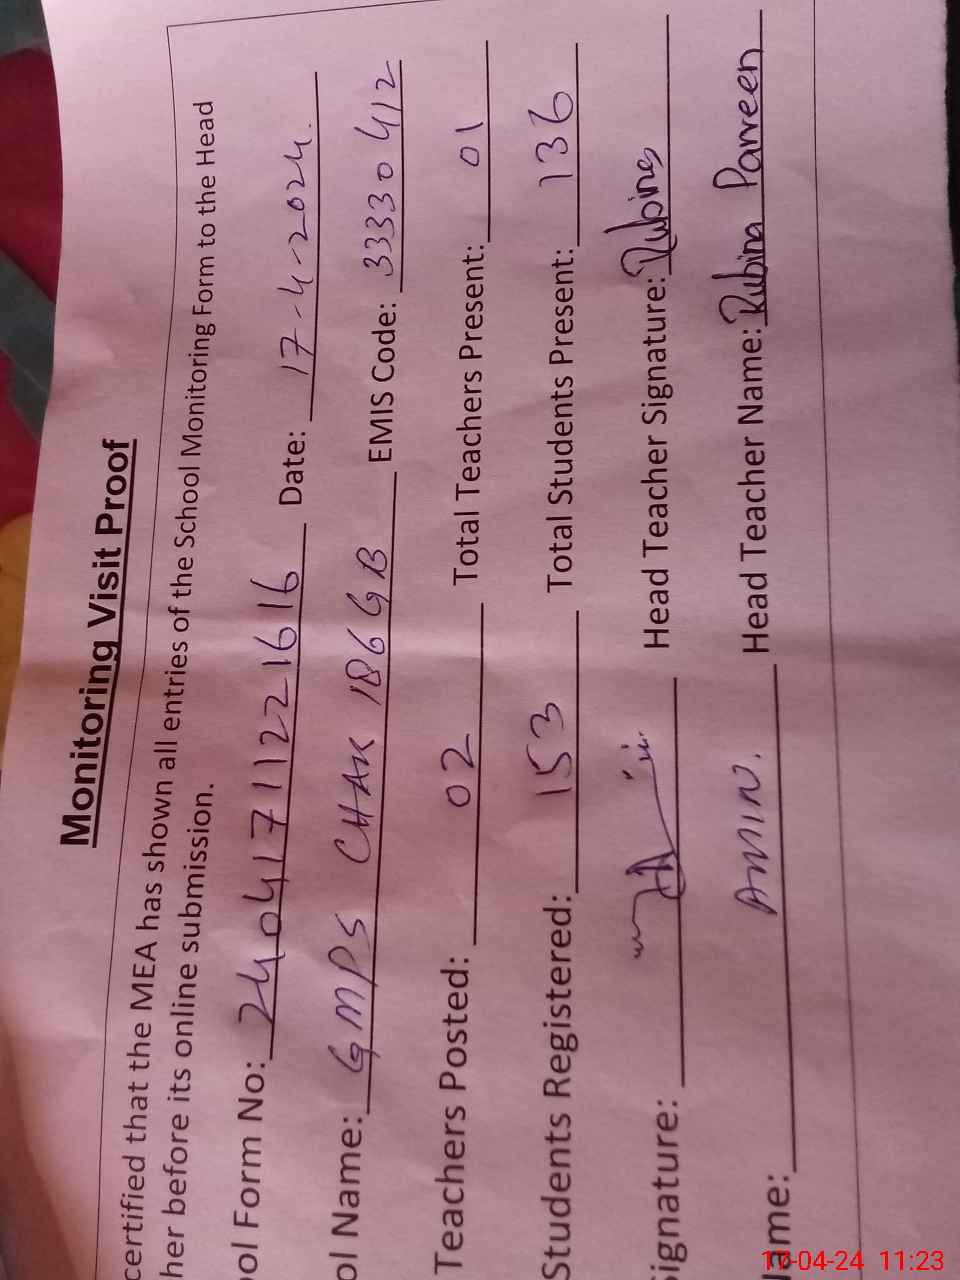 Monitoring Visit Proof
certified that the MEA has shown all entries of the School Monitoring Form to the Head
her before its online submission.
ool Form No: 240417112216 16 Date: 17-4-2024.
ol Name: GMPS CHAK 186 GB EMIS Code: 33330412
Teachers Posted: 02 Total Teachers Present: 01
Students Registered: 153 Total Students Present: 136
ignature: Head Teacher Signature: Rubina
ame: AMIN. Head Teacher Name: Rubina Parveen
17-04-24 11:23